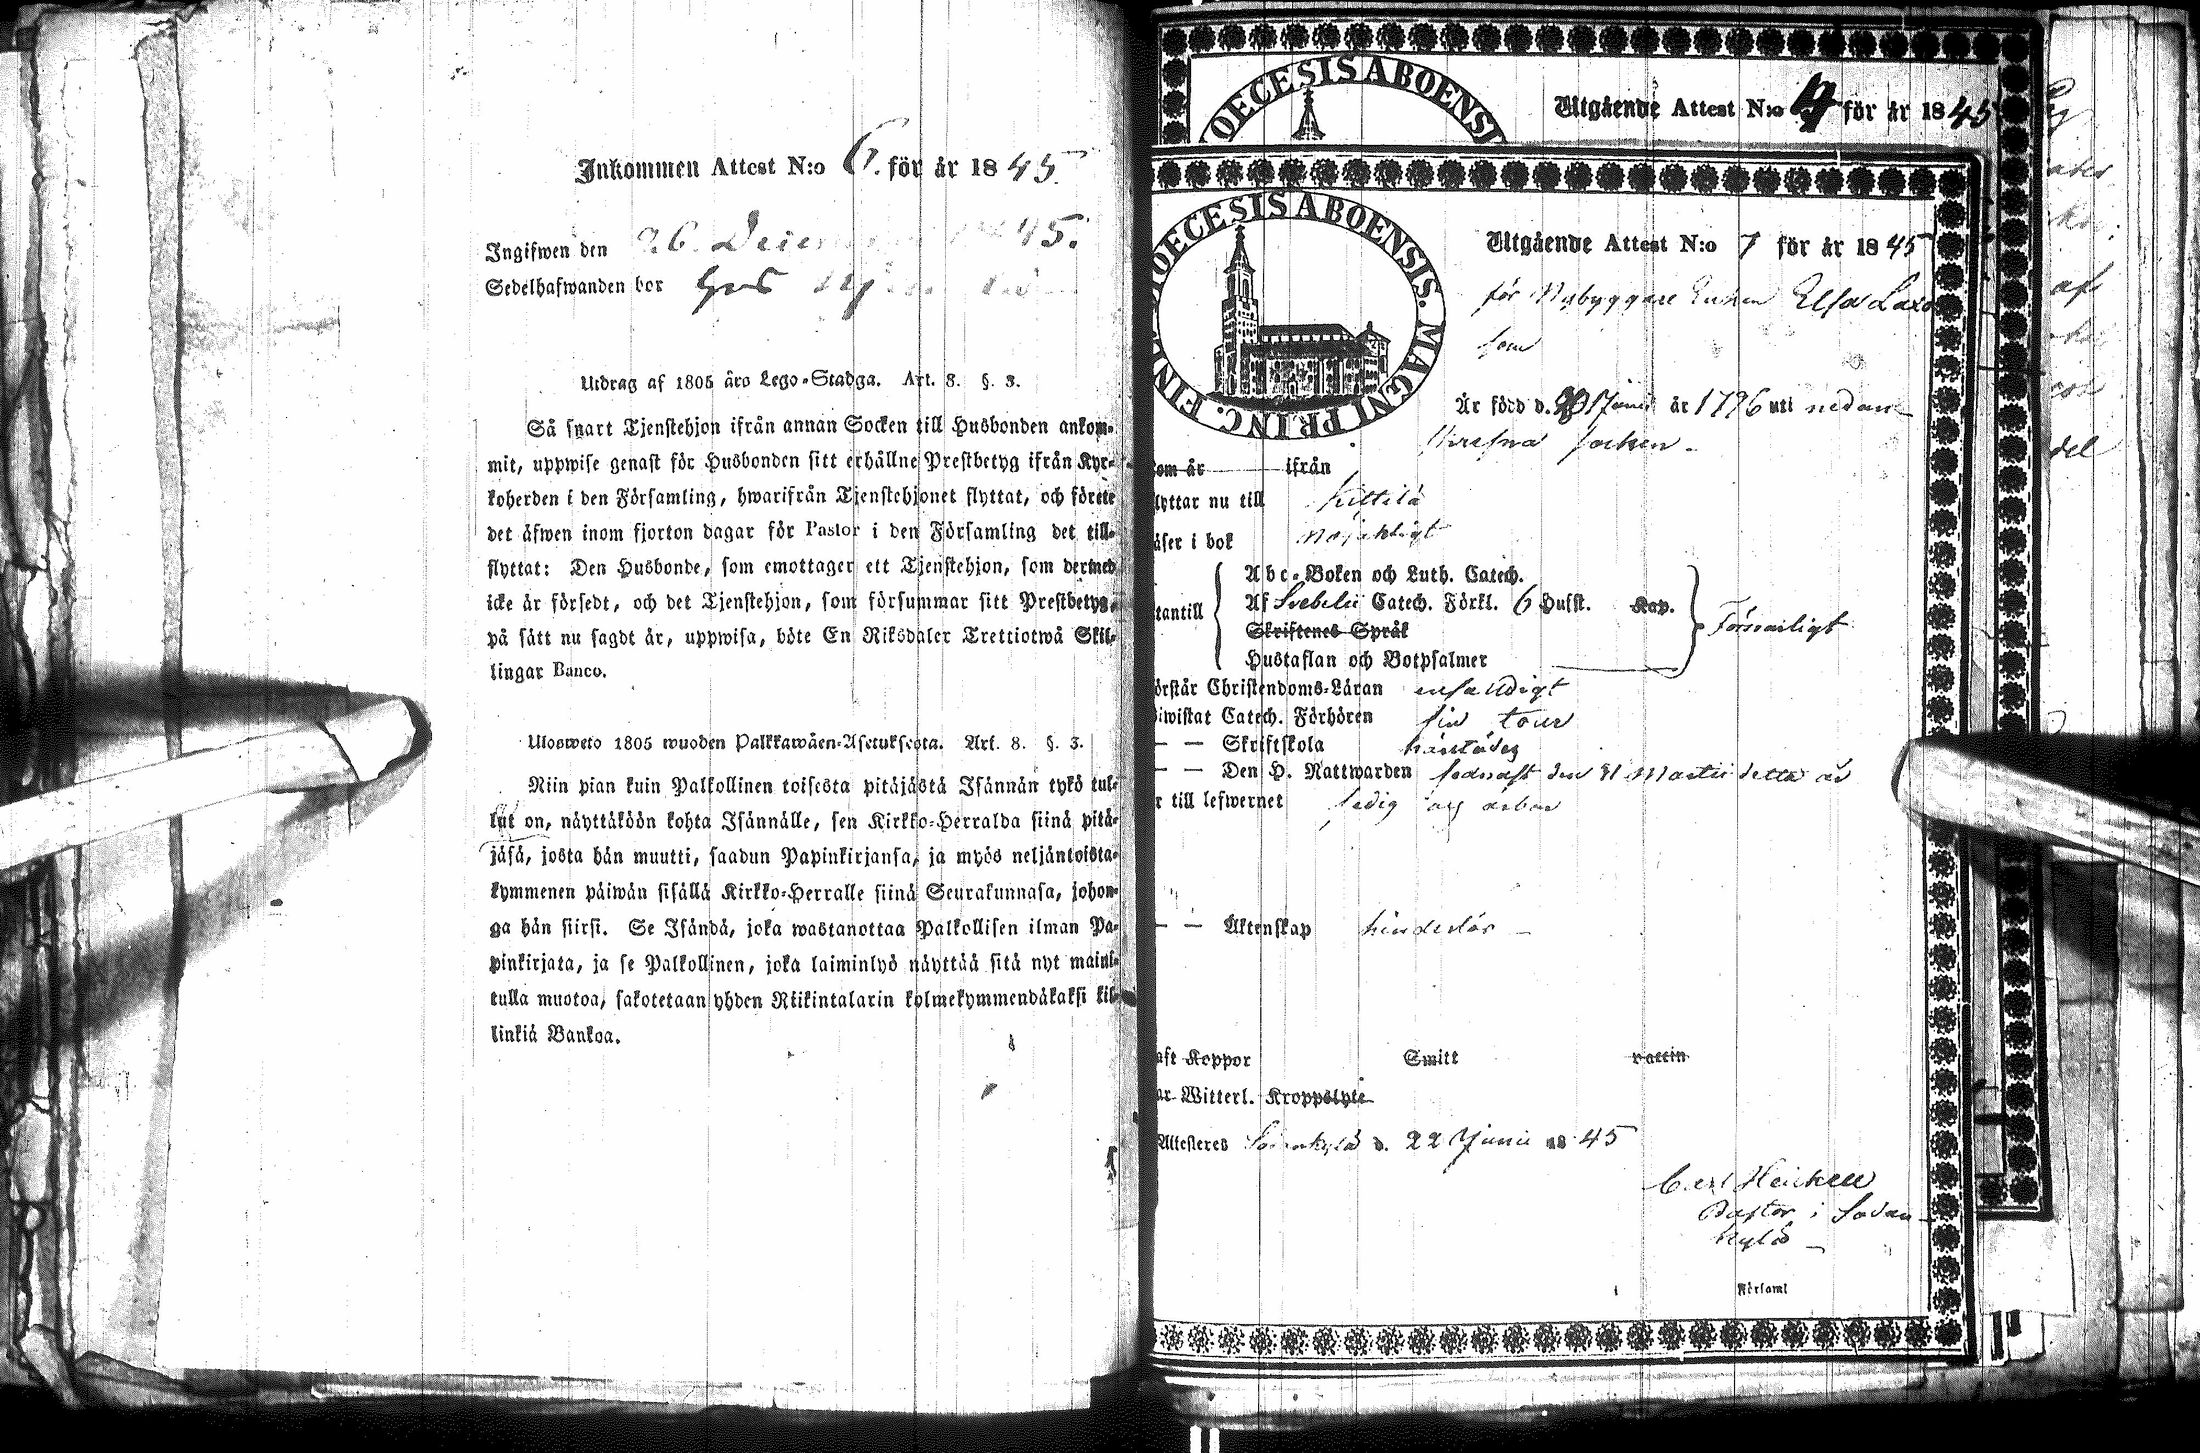 Inkommen Attest N:o 6. för år 1845.
Ingifwen den 26. Decem 1845.
Sedelhafwanden bor hos
Utdrag af 1805 års Lego-Stadga. Art. 8. §. 3.
Så snart Tjenstehjon ifrån annan Socken till Husbonden ankom-
mit, uppwise genast för Husbonden sitt erhållne Prestbetyg ifrån Kyr-
koherden i den Församling, hwarifrån Tjenstehjonet flyttat, och förete
det äfwen inom fjorton dagar för Pastor i den Församling det till-
flyttat: Den Husbonde, som emottager ett Tjenstehjon, som dermed
icke är försedt, och det Tjenstehjon, som försummar sitt Prestbetyg,
på sätt nu sagdt är, uppwisa, böte En Riksdaler Trettiotwå Skil-
lingar Banco.
Ulosweto 1805 wuoden Palkkawäen-Asetuksesta. Art. 8. §. 3.
Niin pian kuin Palkollinen toisesta pitäjästä Isännän tykö tul-
lut on, näyttäköön kohta Isännälle, sen Kirkko-Herralda siinä pitä-
jäsä, josta hän muutti, saadun Papinkirjansa, ja myös neljäntoista-
kymmenen päiwän sisällä Kirkko-Herralle siinä Seurakunnasa, johon-
ga hän siirsi. Se Isändä, joka wastanottaa Palkollisen ilman Pa-
pinkirjata, ja se Palkollinen, joka laiminlyö näyttää sitä nyt maini-
tulla muotoa, sakotetaan yhden Riikintalarin kolmekymmendäkaksi kil-
linkiä Bankoa.
OECESIS ABOENSI
Utgående Attest N:o för år 1845
OECESIS ABOENSIS. MAGNI PRINC. FIN
Utgående Attest N:o 7 för år 1845
för Nybyggare Enkan Elsa
som
Är född d. Junii år 1796 uti nedan
skrefna Socken -
om år ifrån
lyttar nu till Kittilä
äser i bok nöjaktigt
tantill
Abc-Boken och Luth. Catech.
Af Svebelii Catech. Förkl. 6 Hufst. Kap.
Skriftenes Språk
Hustaflan och Botpsalmer
Försvarligt
örstår Christendoms-Läran enfaldigt
iwistat Catech. Förhören sin tour
— — Skriftskola
— — Den H. Nattwarden sednast den Martii detta år
r till lefwernet sedig och ärbar
— — Äktenskap hinderlös -
aft Koppor Smitt vaccin
ar Witterl. Kroppslyte
Attesteres Sodankylä d. 22 Junii 1845
Carl Heickell
Pastor i Sodan-
kylä -
Församl